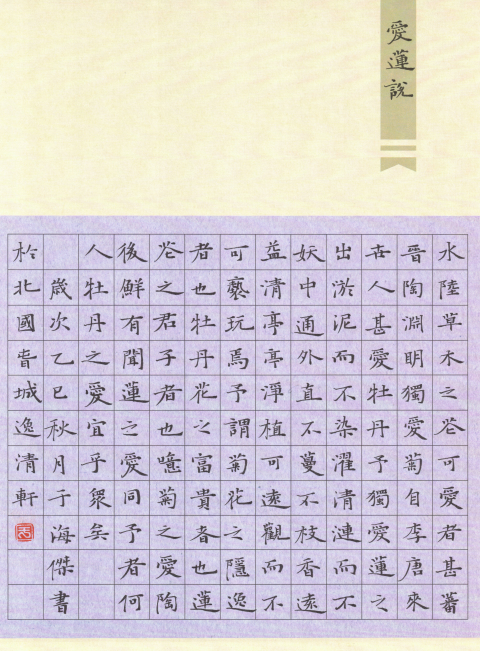 愛蓮說
水陸草木之花可愛者甚蕃
晉陶淵明獨愛菊自李唐來
世人甚愛牡丹予獨愛蓮之
出淤泥而不染濯清漣而不
妖中通外直不蔓不枝香遠
益清亭亭淨植可遠觀而不
可褻玩焉予謂菊花之隱逸
者也牡丹花之富貴者也蓮
花之君子者也噫菊之愛陶
後鮮有聞蓮之愛同予者何
人牡丹之愛宜乎眾矣
歲次乙巳秋月于海傑書
於北國旾城逸清軒